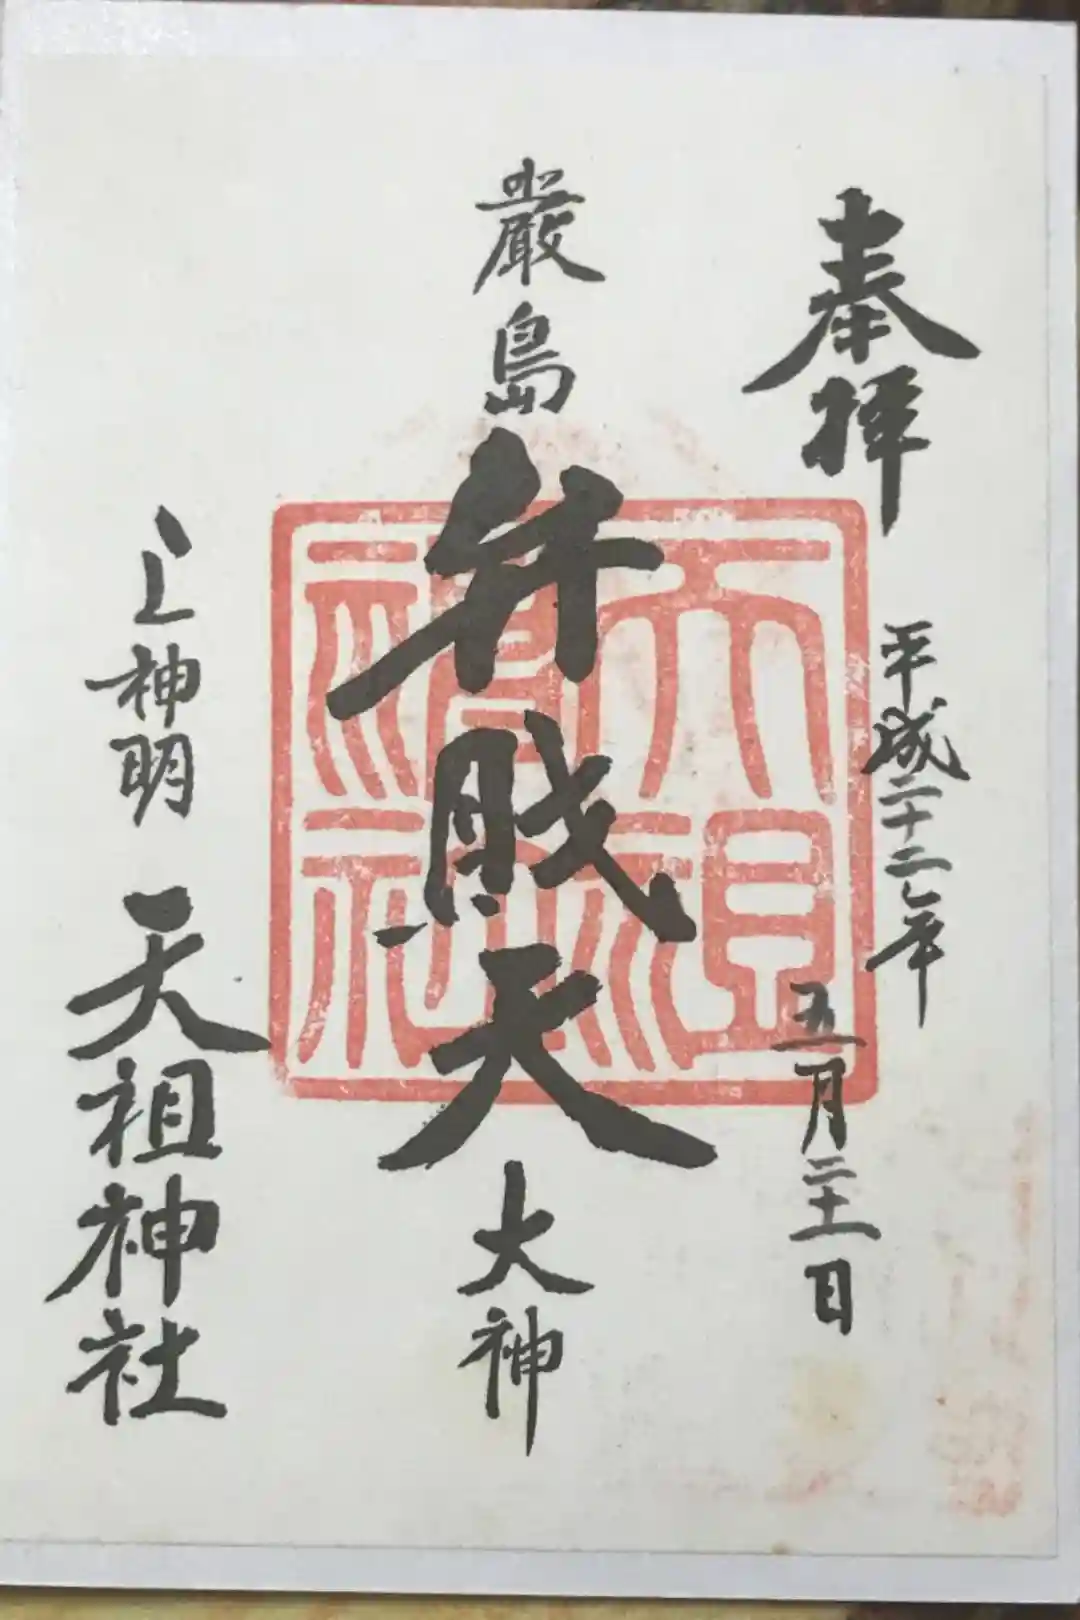 奉拝
平成二十二年
五月二十一日
厳島弁財天大神
上神明天祖神社